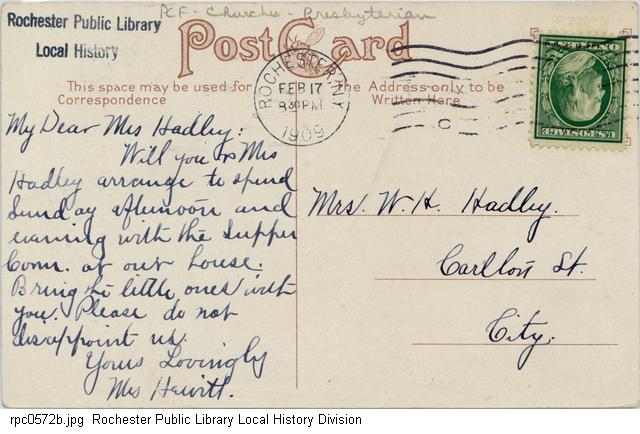 PCF - Churches - Presbyterian
Rochester Public Library
Local History
Post Card
This space may be used for
Correspondence
The Address only to be
Written Here
ROCHESTER, N.Y.
FEB 17
8 30 PM
1909
C
U.S. POSTAGE
ONE CENT
My Dear Mrs Hadley:
Will you & Mrs
Hadley arrange to spend
Sunday afternoon and
evening with the Supper
Com. at our house.
Bring the little ones with
you. Please do not
disappoint us.
Yours Lovingly
Mrs Hewitt.
Mrs. W. H. Hadley.
Carlton St.
City.
rpc0572b.jpg Rochester Public Library Local History Division